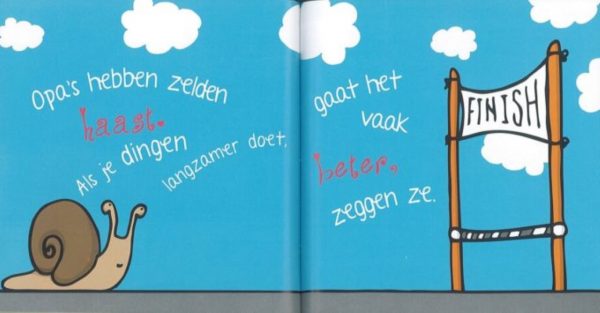 Opa's hebben zelden
haast.
Als je dingen
langzamer doet,
gaat het
vaak
beter,
zeggen ze.
FINISH